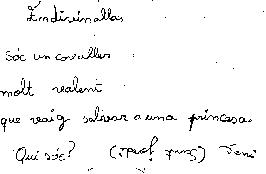 Endivinalla
Sóc un cavaller
molt valent
que vaig salvar a una princesa.
Qui sóc? (Sant Jordi)